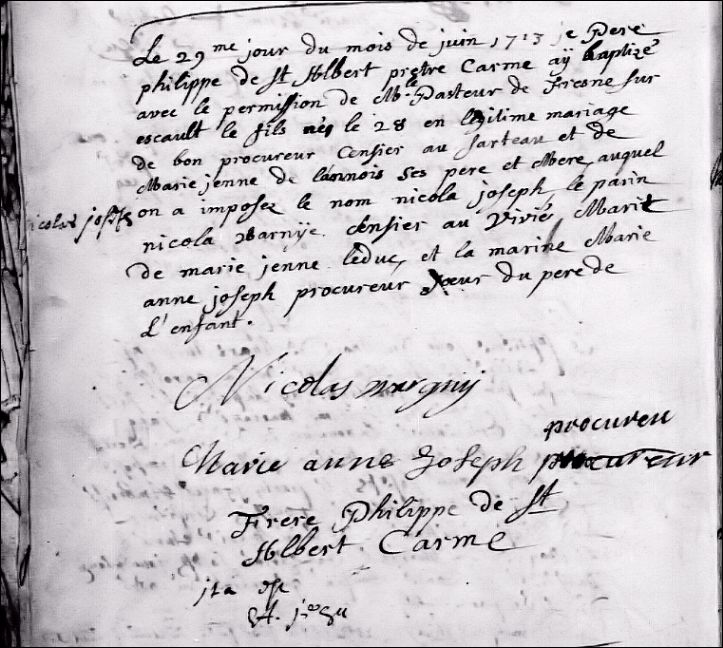 Le 29me jour du mois de juin 1713 je Pere
philippe de St Albert pretre Carme aÿ baptizé
avec le permission de Mr le Pasteur de Fresne sur
escault le fils nés le 28 en legitime mariage
de bon procureur Censier au sarteau et de
Marie jenne de lannois ses pere et Mere, auquel
on a imposez le nom nicola joseph, le parin
nicolas
nicola Censier au Vivié, Marit
de marie jenne leduc, et la marine Marie
anne joseph procureur soeur du pere de
L'enfant.
Nicolas
procureu
Marie anne Joseph procureur
Frere Philippe de St
Albert Carme
jta est